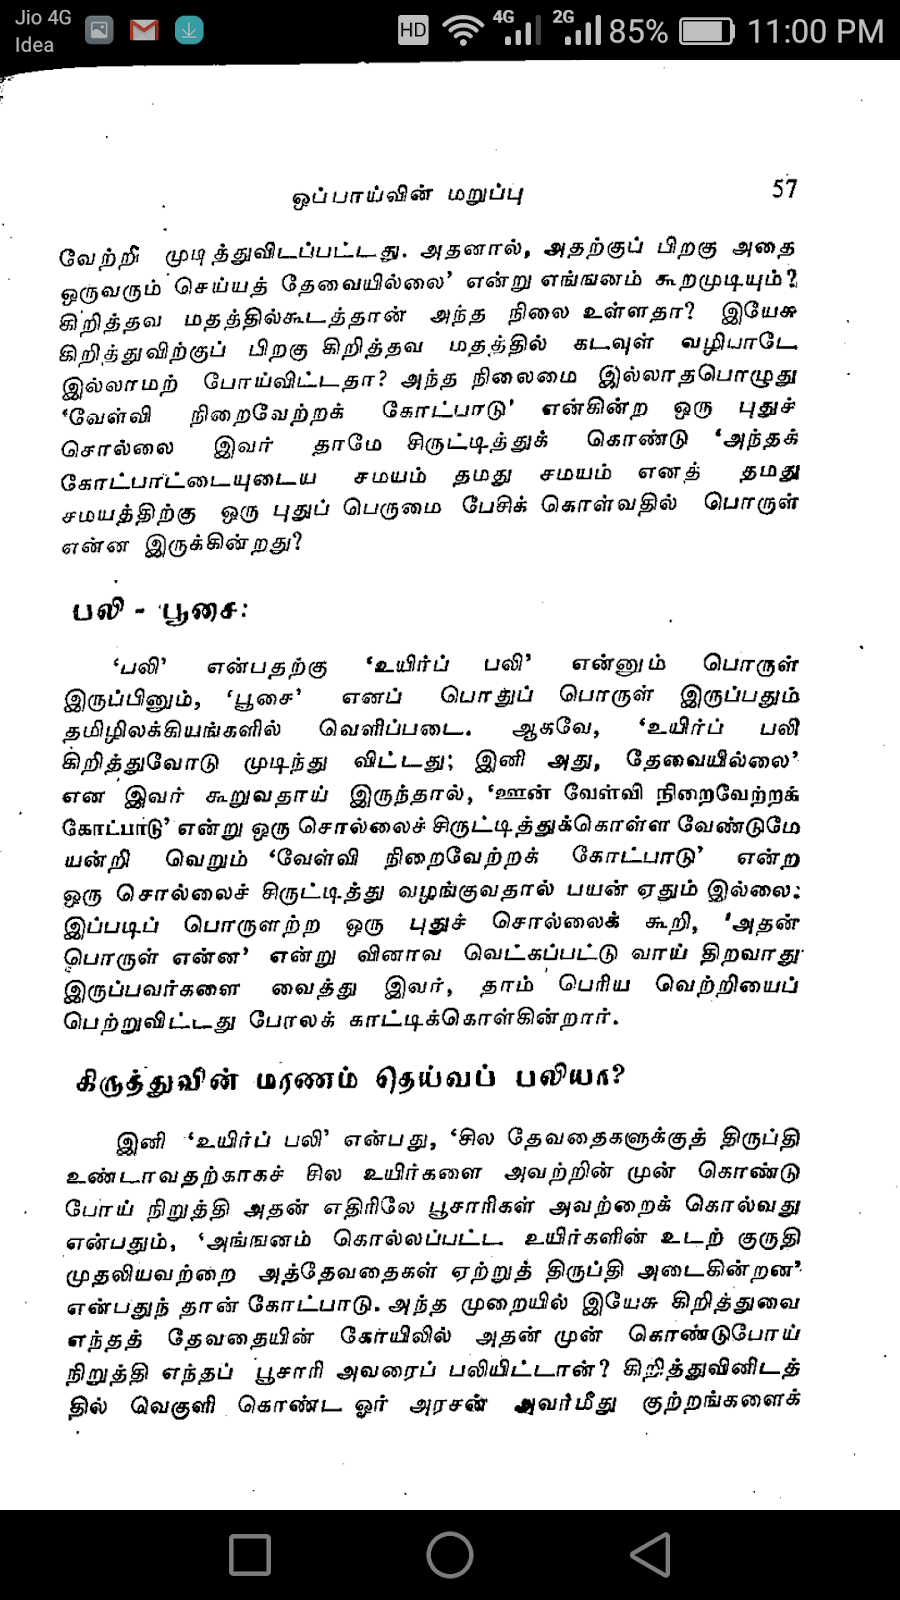 Jio 4G
Idea
HD 4G 2G 85% 11:00 PM
ஒப்பாய்வின் மறுப்பு 57
வேற்றி முடித்துவிடப்பட்டது. அதனால், அதற்குப் பிறகு அதை
ஒருவரும் செய்யத் தேவையில்லை’ என்று எங்ஙனம் கூறமுடியும்?
கிறித்தவ மதத்தில்கூடத்தான் அந்த நிலை உள்ளதா? இயேசு
கிறித்துவிற்குப் பிறகு கிறித்தவ மதத்தில் கடவுள் வழிபாடே
இல்லாமற் போய்விட்டதா? அந்த நிலைமை இல்லாதபொழுது
‘வேள்வி நிறைவேற்றக் கோட்பாடு’ என்கின்ற ஒரு புதுச்
சொல்லை இவர் தாமே சிருட்டித்துக் கொண்டு ‘அந்தக்
கோட்பாட்டையுடைய சமயம் தமது சமயம் எனத் தமது
சமயத்திற்கு ஒரு புதுப் பெருமை பேசிக் கொள்வதில் பொருள்
என்ன இருக்கின்றது?
பலி - பூசை:
‘பலி’ என்பதற்கு ‘உயிர்ப் பலி’ என்னும் பொருள்
இருப்பினும், ‘பூசை’ எனப் பொதுப் பொருள் இருப்பதும்
தமிழிலக்கியங்களில் வெளிப்படை. ஆகவே, ‘உயிர்ப் பலி
கிறித்துவோடு முடிந்து விட்டது; இனி அது, தேவையில்லை’
என இவர் கூறுவதாய் இருந்தால், ‘ஊன் வேள்வி நிறைவேற்றக்
கோட்பாடு’ என்று ஒரு சொல்லைச் சிருட்டித்துக்கொள்ள வேண்டுமே
யன்றி வெறும் ‘வேள்வி நிறைவேற்றக் கோட்பாடு’ என்ற
ஒரு சொல்லைச் சிருட்டித்து வழங்குவதால் பயன் ஏதும் இல்லை;
இப்படிப் பொருளற்ற ஒரு புதுச் சொல்லைக் கூறி, ‘அதன்
பொருள் என்ன’ என்று வினாவ வெட்கப்பட்டு வாய் திறவாது
இருப்பவர்களை வைத்து இவர், தாம் பெரிய வெற்றியைப்
பெற்றுவிட்டது போலக் காட்டிக்கொள்கின்றார்.
கிருத்துவின் மரணம் தெய்வப் பலியா?
இனி ‘உயிர்ப் பலி’ என்பது, ‘சில தேவதைகளுக்குத் திருப்தி
உண்டாவதற்காகச் சில உயிர்களை அவற்றின் முன் கொண்டு
போய் நிறுத்தி அதன் எதிரிலே பூசாரிகள் அவற்றைக் கொல்வது
என்பதும், ‘அங்ஙனம் கொல்லப்பட்ட உயிர்களின் உடற் குருதி
முதலியவற்றை அத்தேவதைகள் ஏற்றுத் திருப்தி அடைகின்றன’
என்பதுந் தான் கோட்பாடு. அந்த முறையில் இயேசு கிறித்துவை
எந்தத் தேவதையின் கோயிலில் அதன் முன் கொண்டுபோய்
நிறுத்தி எந்தப் பூசாரி அவரைப் பலியிட்டான்? கிறித்துவினிடத்
தில் வெகுளி கொண்ட ஓர் அரசன் அவர்மீது குற்றங்களைக்